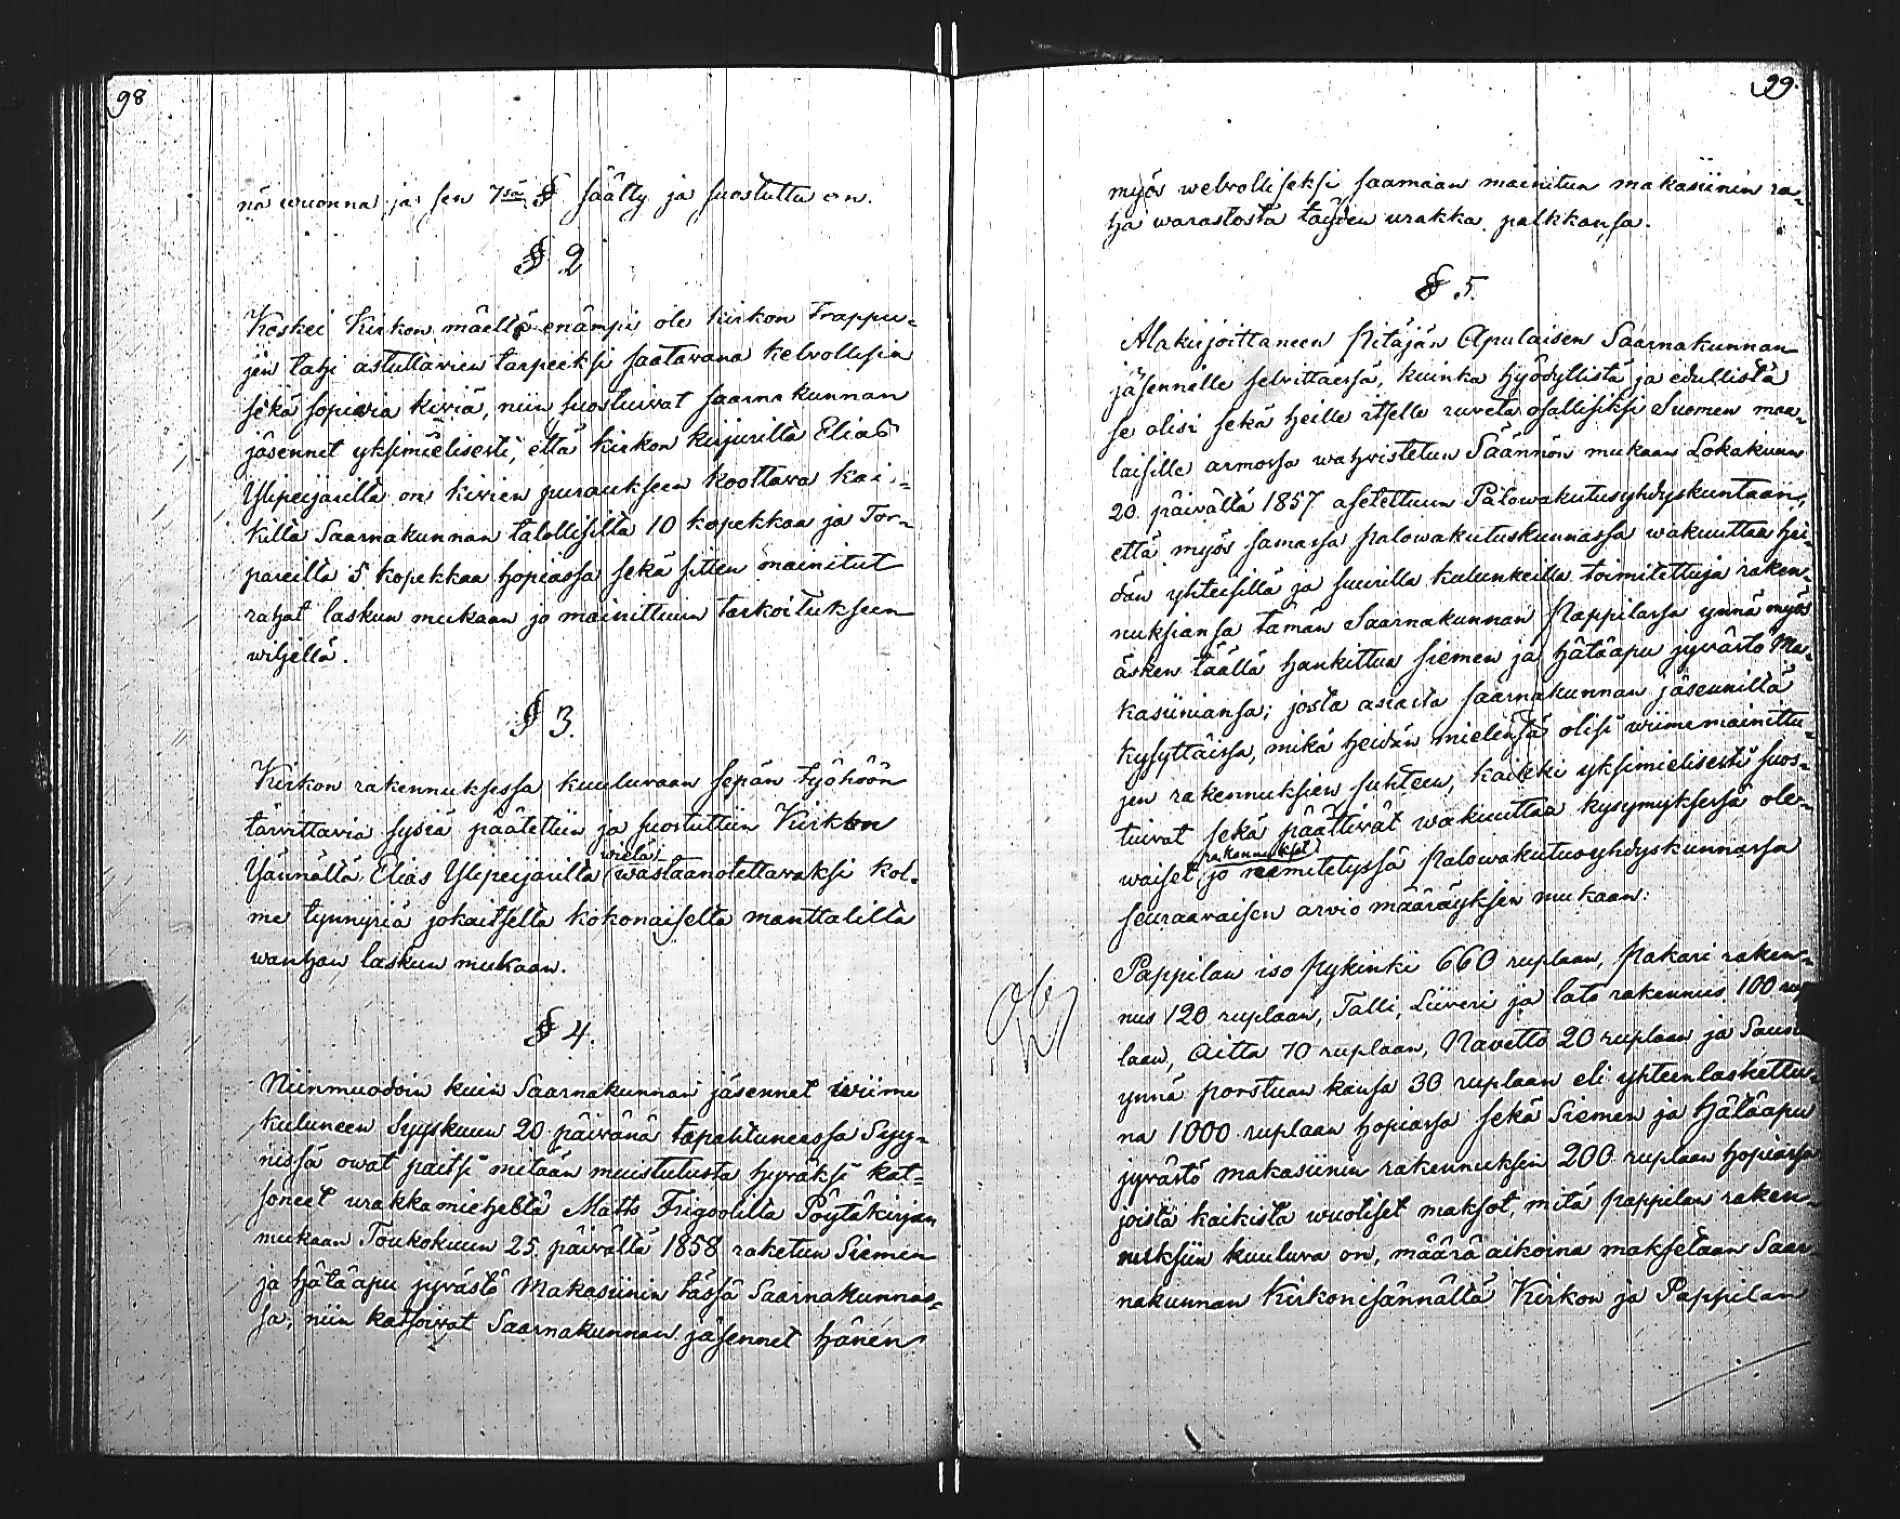 98
nä wuonna ja sen 7sä § säätty ja suostuttu on.
§ 2
Koskei Kirkon mäellä enämpi ole kirkon Trappu-
jen tahi astuttawien tarpeeksi saatawana kelwollisia
sekä sopiwia kiwiä, niin suostuiwat saarnakunnan
jäsennet yksimielisesti, että kirkon kirjurilta Elias
Ylipeijarilta on kiwien puraukseen koottawa kai-
kilta Saarnakunnan talollisilta 10 kopekkaa ja Tor-
pareilta 5 kopekkaa hopiassa sekä sitten mainitut
rahat laskun mukaan jo mainittuun tarkoitukseen
wiljellä.
§ 3.
Kirkon rakennuksessa kuuluwaan sepän työhöön
tarvittavia sysiä päätettiin ja suostuttiin Kirkon
Isännältä Elias Ylipeijarilta wielä wastaanotettawaksi kol-
me tynnyriä jokaitselta kokonaiselta manttalilta
wanhan laskun mukaan.
§ 4.
Niinmuodoin kuin Saarnakunnan jäsennet wiime
kuluneen Syyskuun 20 päivänä tapahtuneessa Syy-
nissä owat paitsi mitään muistutusta hyväksi kat-
soneet urakkamieheltä Matts Frigoolilta Pöytäkirjan
mukaan Toukokuun 25 päivältä 1858 raketun Siemen
ja hätäapu jyvästö Makasiinin tässä Saarnakunnas-
sa, niin katsoiwat Saarnakunnan jäsennet hänen
99.
myös welwolliseksi saamaan mainitun makasiinin ra-
ha warastosta täyden urakka palkkansa.
§ 5.
Alakirjoittaneen Pitäjän Apulaisen Saarnakunnan
jäsennille selvittäessä, kuinka hyödyllistä ja edullista
se olisi sekä heille itselle ruveta osallisiksi Suomen maa-
laisille armossa wahvistetun Säännön mukaan Lokakuun
20 päivältä 1857 asetettuun Palowakutusyhdyskuntaan,
että myös samassa palowakutuskunnassa wakuuttaa hei-
dän yhteisillä ja suurilla kulunkeilla toimitettuja raken-
nuksiansa tämän Saarnakunnan Pappilassa ynnä myös
äsken täällä hankittua siemen ja hätäapu jyvästö Ma-
kasiiniansa; josta asiasta saarnakunnan jäsennillä
kysyttäissä, mikä heidän mielensä olisi wiimemainittu-
jen rakennuksien suhteen, kaikki yksimielisesti suos-
tuivat sekä päättivät wakuuttaa kysymyksessä ole-
waiset rakennukset jo nimitetyssä palowakutusyhdyskunnassa
seuraawaisen arvio määräyksen mukaan:
Pappilan iso Pykinki 660 ruplaan, Pakari raken-
nus 120 ruplaan, Talli, Liiveri ja lato rakennus 100 rup
laan, Aitta 70 ruplaan, Navetto 20 ruplaan ja Sauna
ynnä porstuan kansa 30 ruplaan eli yhteenlaskettu-
na 1000 ruplaan hopiassa sekä Siemen ja hätäapu
jyvästö makasiinin rakennuksen 200 ruplaan hopiassa
joista kaikista wuotiset maksot, mitä pappilan raken-
nuksiin kuuluva on, määrä aikoina maksetaan Saar-
nakunnan Kirkonisännältä Kirkon ja Pappilan